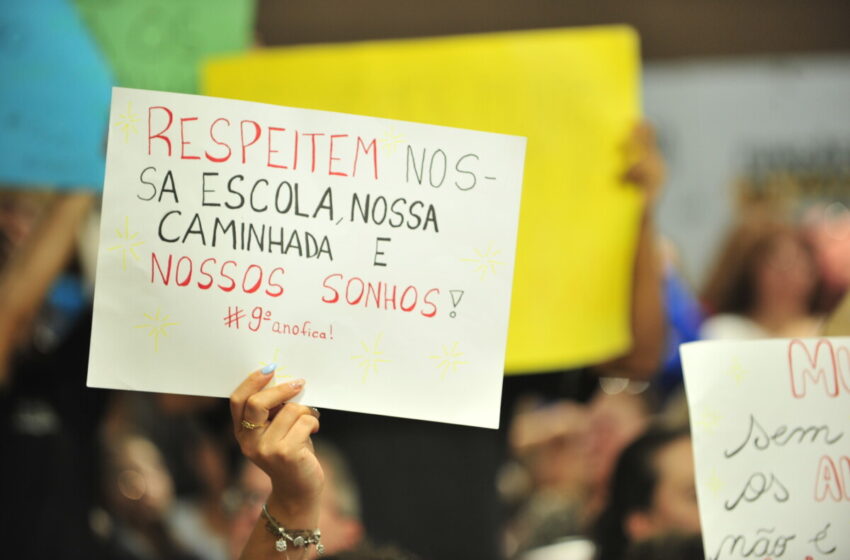 RESPEITEM NOS-
SA ESCOLA, NOSSA
CAMINHADA E
NOSSOS SONHOS!
#9ºanofica!
sem
os
não é